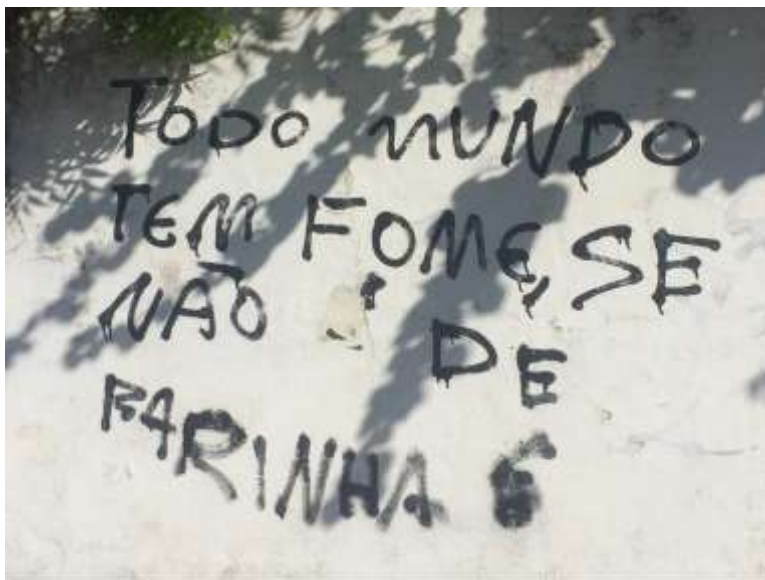 TODO MUNDO
TEM FOME, SE
NÃO DE
FARINHA É